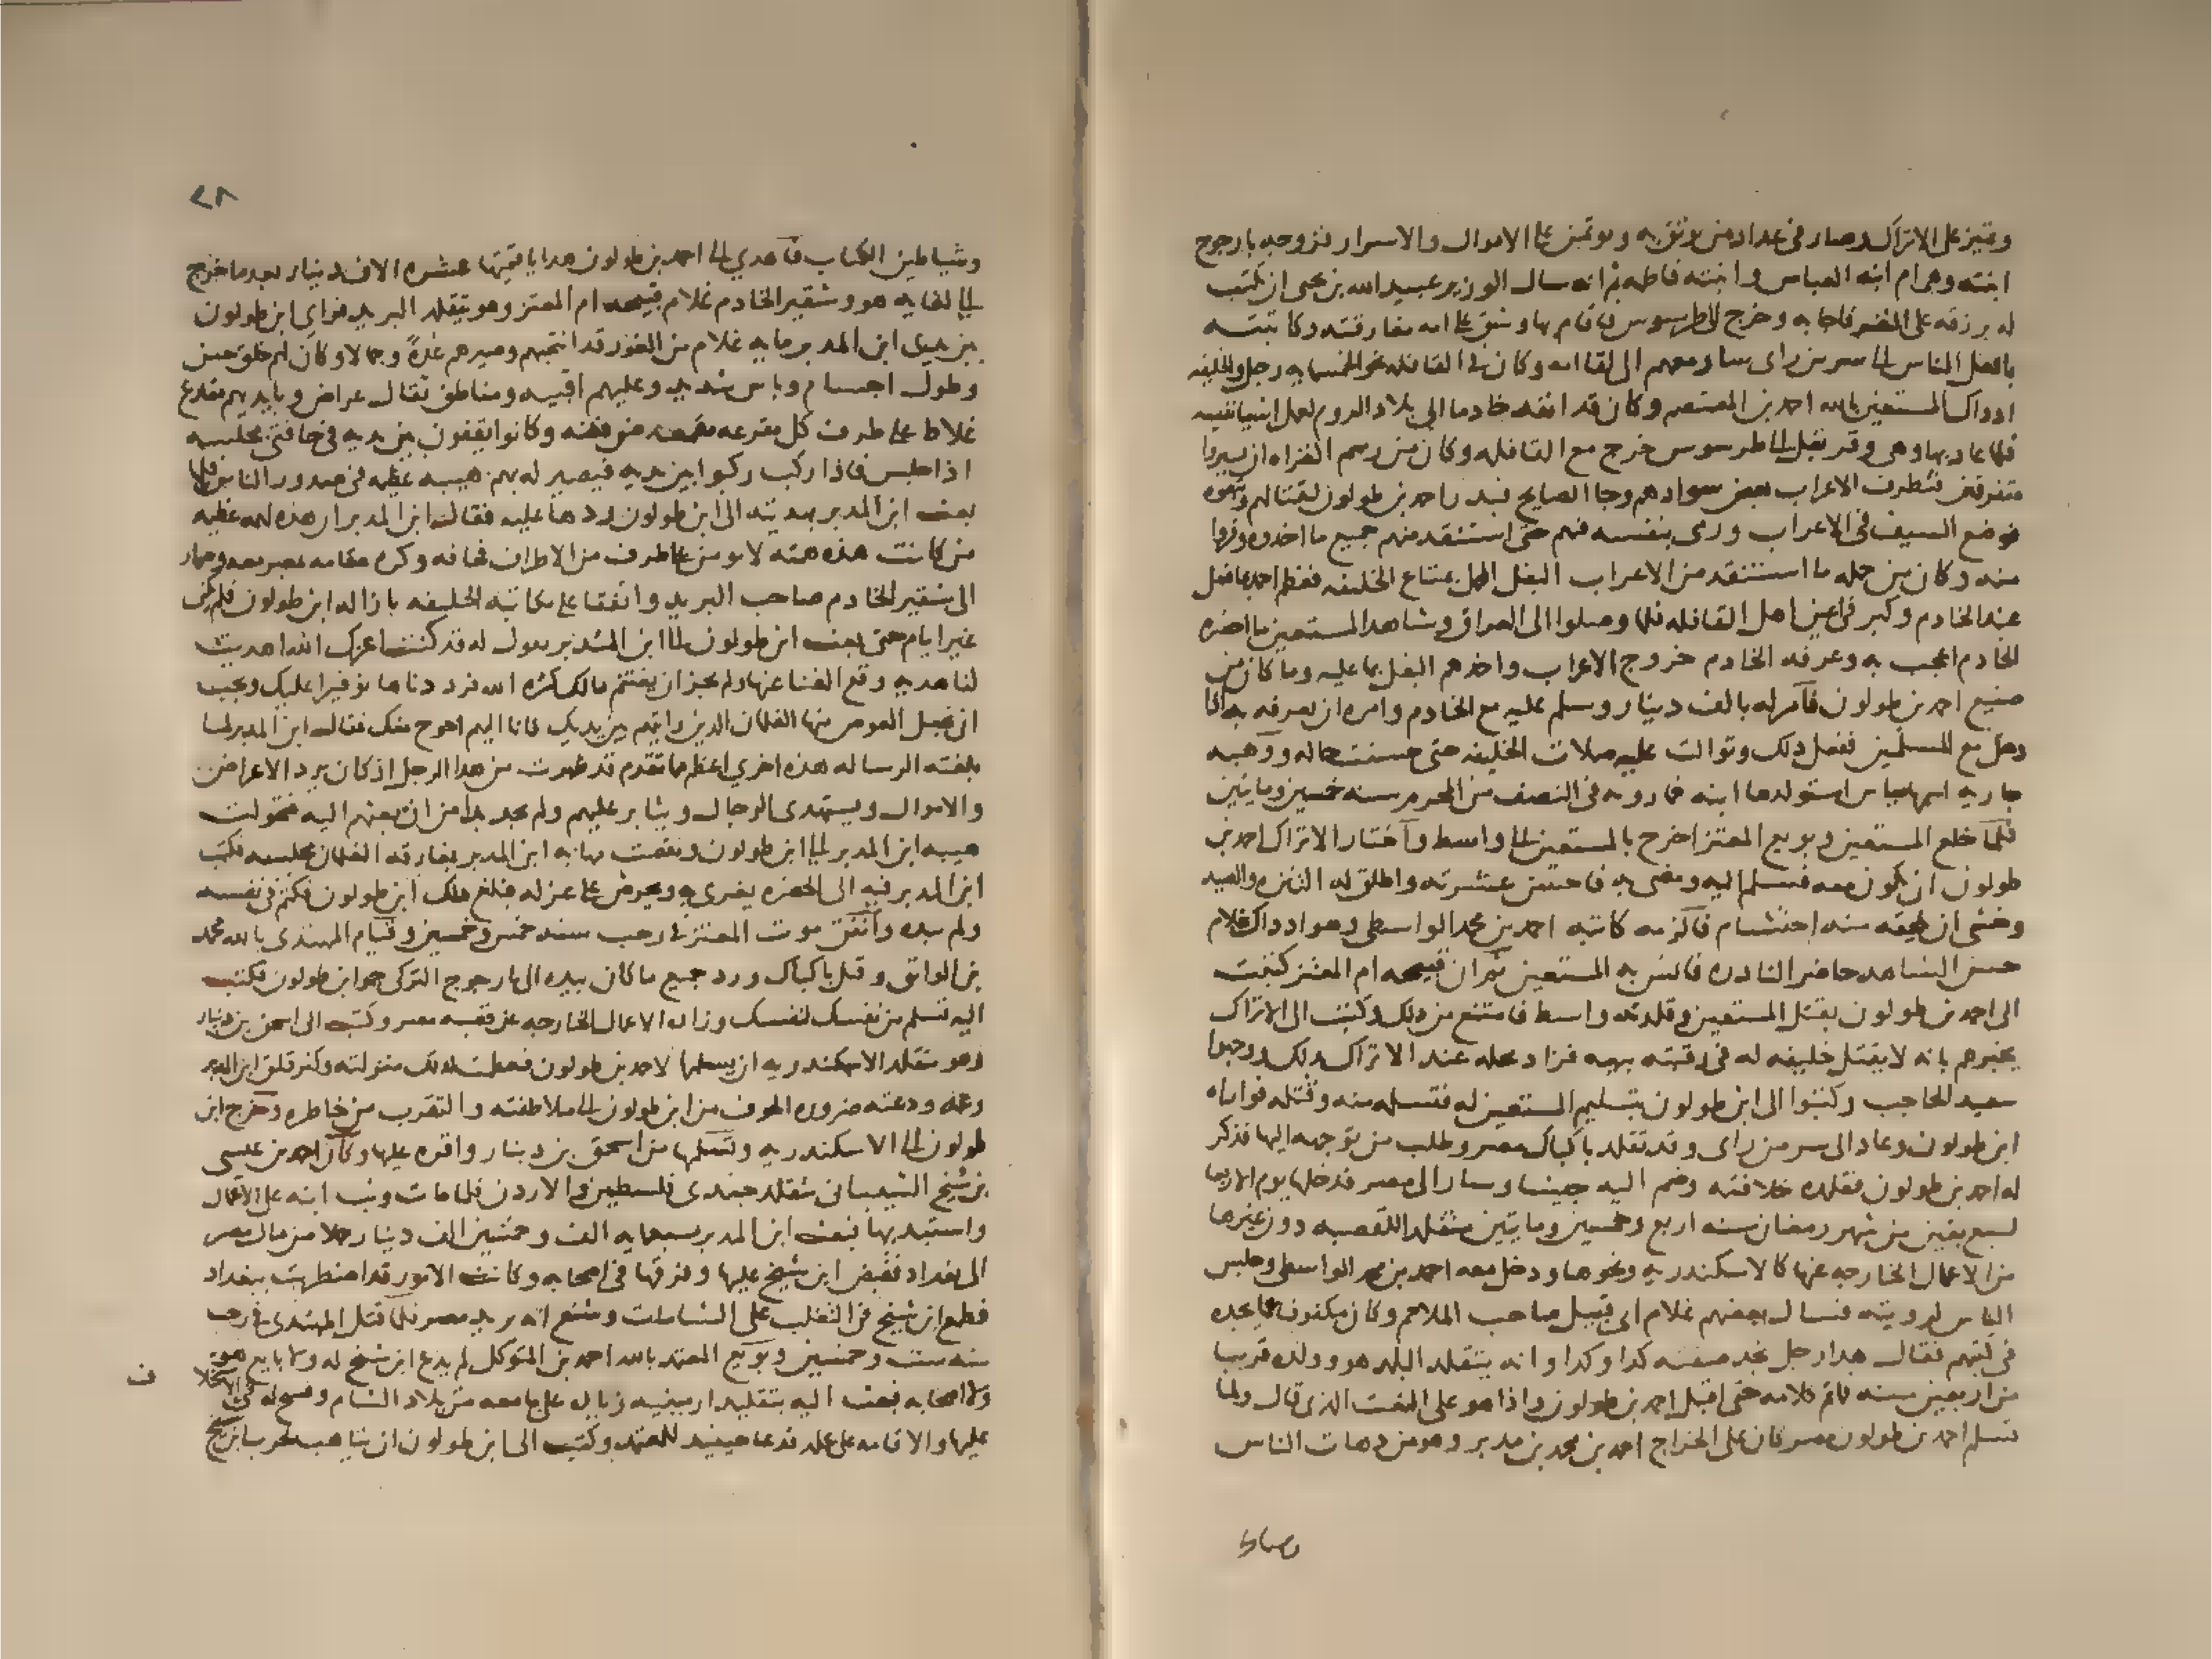 وتميز على الاتراك وصار في عداد من يوثق به ويوتمن على الاموال والاسرار فزوجه بارجوج
ابنته وهي ام ابنه العباس وابنته فاطمه ثم انه سال الوزير عبيد الله بن يحيى ان يكتب
له برزقه على الثغر فاجابه وخرج الى طرسوس فاقام بها وشق على امه مفارقته وكاتبته
بالقفل الناس الى سر من راى سار معهم الى لقا امه وكان في القافله نحو الخمسمايه رجل والخليفه
اد ذاك المستعين بالله احمد بن المعتصم وكان قد انفذ خادما الى بلاد الروم لعمل اشيا نفيسه
فلما عاد بها وهي وقر بغل الى طرسوس خرج مع القافله وكان من رسم الغزاه ان يسيروا
متفرقين فطرق الاعراب بعض سوادهم وجا الصايح فبدر احمد بن طولون لقتالهم وتبعوه
فوضع السيف في الاعراب ورمى بنفسه فيهم حتى استنقد منهم جميع ما اخدوه وفروا
منه وكان من جمله ما استنقد من الاعراب البغل المحمل بمتاع الخليفه فعظم احمد بما فعل
عند الخادم وكبر في اعين اهل القافله فلما وصلوا الى العراق وشاهد المستعين ما احضره
الخادم اعجب به وعرفه الخادم خروج الاعراب واخدهم البغل بما عليه وما كان من
صنيع احمد بن طولون فامر له بالف دينار وسلم عليه مع الخادم وامره ان يعرفه به اذا
دخل مع المسلمين ففعل ذلك وتوالت عليه صلات الخليفه حتى حسنت حاله ووهبه
جاريه اسمها مياس استولدها ابنه خمارويه في النصف من المحرم سنه خمسين ومايتين
فلما خلع المستعين وبويع المعتز اخرج المستعين الى واسط واختار الاتراك احمد بن
طولون ان يكون معه فسلم اليه ومضى به فاحسن عشرته واطلق له التنزه والصيد
وخشى ان يلحقه منه احتشام فالزمه كاتبه احمد بن محمد الواسطي وهو اد داك غلام
حسن الشاهد حاضر النادره فانس به المستعين ثم ان قبيحه ام المعتز كتبت
الى احمد بن طولون بقتل المستعين وقلدته واسط فامتنع من ذلك وكتب الى الاتراك
يخبرهم بانه لا يقتل خليفه له في رقبته بيعه فزاد محله عند الاتراك بدلك ووجهوا
سعيد الحاجب وكتبوا الى ابن طولون بتسليم المستعين له فتسلمه منه وقتله فواراه
ابن طولون وعاد الى سر من راى وقد تقلد باكباك مصر وطلب من يوجهه اليها فذكر
له احمد بن طولون فقلده خلافته وضم اليه جيشا وسار الى مصر فدخلها يوم الاربعا
لسبع بقين من شهر رمضان سنه اربع وخمسين ومايتين متقلدا للقصبه دون غيرها
من الاعمال الخارجه عنها كالاسكندريه ونحوها ودخل معه احمد بن محمد الواسطي وجلس
الناس لرويته فسال بعضهم غلام ابي قبيل صاحب الملاحم وكان مكفوفا عما يجده
في كتبهم فقال هدا رجل نجد صفته كدا وكدا وانه يتقلد البلد هو وولده قريبا
من اربعين سنه فما تم كلامه حتى اقبل احمد بن طولون واذا هو على النعت الذي قال ولما
تسلم احمد بن طولون مصر كان على الخراج احمد بن محمد بن مدبر وهو من دهات الناس
٢٨
وشياطين الكتاب فاهدي الى احمد بن طولون هدايا قيمتها عشره الاف دينار بعد ما خرج
الى لقايه هو وشقير الخادم غلام قبيحه ام المعتز وهو يتقلد البريد فراي ابن طولون
بين يدي ابن المدبر مايه غلام من الغور قد انتخبهم وصيرهم عدة وجمالا وكان لهم خلق حسن
وطول اجسام وباس شديد وعليهم اقبيه ومناطق ثقال عراض وبايديهم مقارع
غلاظ على طرف كل مقرعه مقمعه من فضه وكانوا يقفون بين يديه في حافتي مجلسه
اذا جلس فاذا ركب ركبوا بين يديه فيصير له بهم هيبه عظيمه في صدور الناس فلما
بعث ابن المدبر بهديته الى ابن طولون ردها عليه فقال ابن المدبر ان هذه لهمه عظيمه
من كانت هذه همته لا يومن على طرف من الاطراف فخافه وكره مقامه بمصر معه وصار
الى شقير الخادم صاحب البريد واتفقا على مكاتبه الخليفه بازاله ابن طولون فلم يكن
غير ايام حتى بعث ابن طولون الى ابن المدبر يقول له قد كنت اعزك الله اهديت
لنا هديه وقع الغنا عنها ولم يجز ان يغتنم مالك كثره الله فرددناها توفيرا عليك ونحب
ان تجعل العوض منها الغلمان الذين رايتهم بين يديك فانا اليهم احوج منك فقال ابن المدبر لما
بلغته الرساله هذه اخري اعظم مما تقدم قد ظهرت من هدا الرجل اذ كان يرد الاعراض
والاموال ويستهدى الرجال ويثابر عليهم ولم يجد بدا من ان بعثهم اليه فتحولت
هيبه ابن المدبر الى ابن طولون ونقصت مهابه ابن المدبر بمفارقه الغلمان مجلسه فكتب
ابن المدبر فيه الى الحضره يغري به ويحرض على عزله فبلغ ذلك ابن طولون فكتم في نفسه
ولم يبده واتفق موت المعتز في رجب سنه خمس وخمسين وقيام المهتدى بالله محمد
بن الواثق وقتل باكباك ورد جميع ما كان بيده الى بارجوج التركي حمو ابن طولون فكتب
اليه تسلم من نفسك لنفسك وزاده الاعمال الخارجه عن قصبه مصر وكتب الى اسحق بن دينار
وهو متقلد الاسكندريه ان يسلمها لاحمد بن طولون فعظمت لذلك منزلته وكثر قلق ابن المدبر
وغمه ودعته ضروره الخوف من ابن طولون الى ملاطفته والتقرب من خاطره وخرج ابن
طولون الى الاسكندريه وتسلمها من اسحق بن دينار واقره عليها وكان احمد بن عيسى
بن شيخ الشيبانى يتقلد جندى فلسطين والاردن فلما مات وثب ابنه على الاعمال
واستبد بها فبعث ابن المدبر سبعمايه الف وخمسين الف دينار حملا من مال مصر
الى بغداد فقبض ابن شيخ عليها وفرقها في اصحابه وكانت الامور قد اضطربت ببغداد
فطمع ابن شيخ في التغلب على الشامات وشنع انه يريد مصر فلما قتل المهتدى في رجب
سنه ست وخمسين وبويع المعتمد بالله احمد بن المتوكل لم يدع ابن شيخ له ولا بايع هو
ولا اصحابه فبعث اليه بتقليد ارمينيه زياده على ما معه من بلاد الشام وفسح له في الاستخلاف
عليها والاقامه على عمله فدعا حينيد للمعتمد وكتب الى ابن طولون ان يتاهب لحرب ابن شيخ